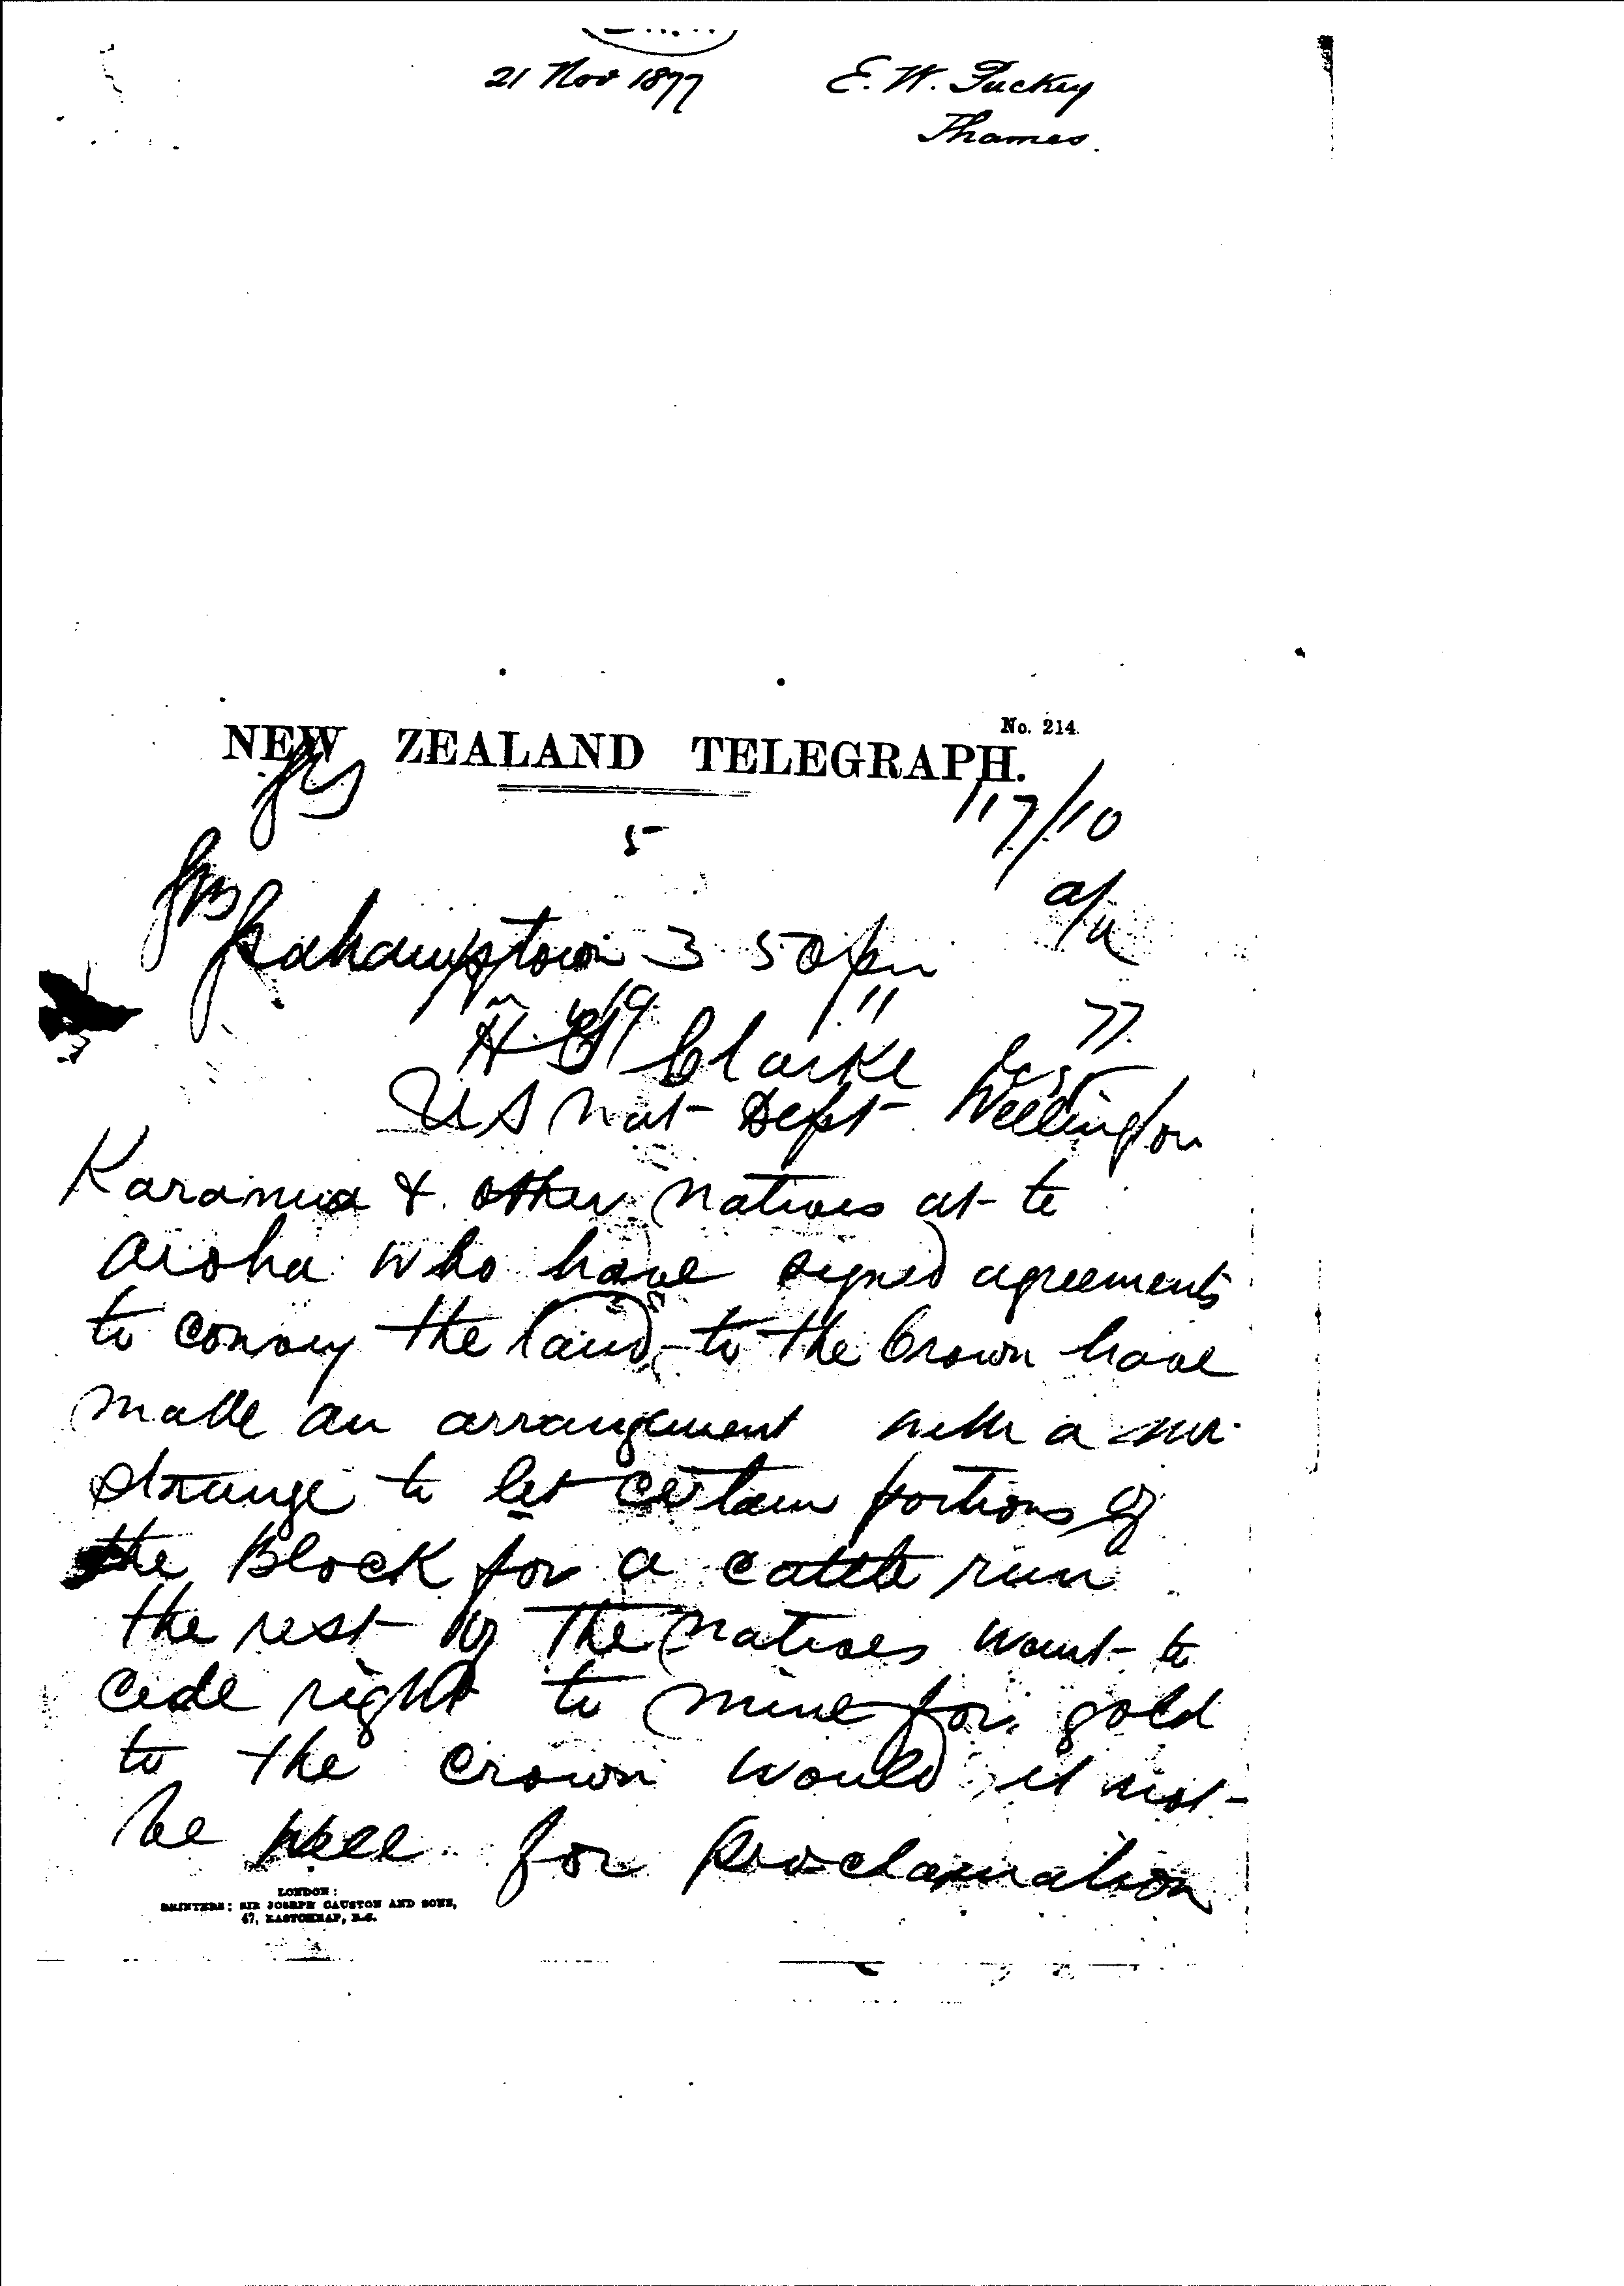 21 Nov 1877
E. W. Puckey
Thames.
No. 214.
NEW ZEALAND TELEGRAPH.
117/10
5
Grahamstown 3 50 pm
77
H Clarke Esq
U S Nat Dept Wellington
Karamua & other natives at te
Aroha who have signed agreements
to convey the land to the Crown have
made an arrangement with a Mr
Strange to let certain portions of
the Block for a cattle run
the rest of the natives want to
cede right to mine for gold
to the Crown would it not
be well for Proclamation
LONDON:
PRINTERS: SIR JOSEPH CAUSTON AND SONS,
47, EASTCHEAP, E.C.